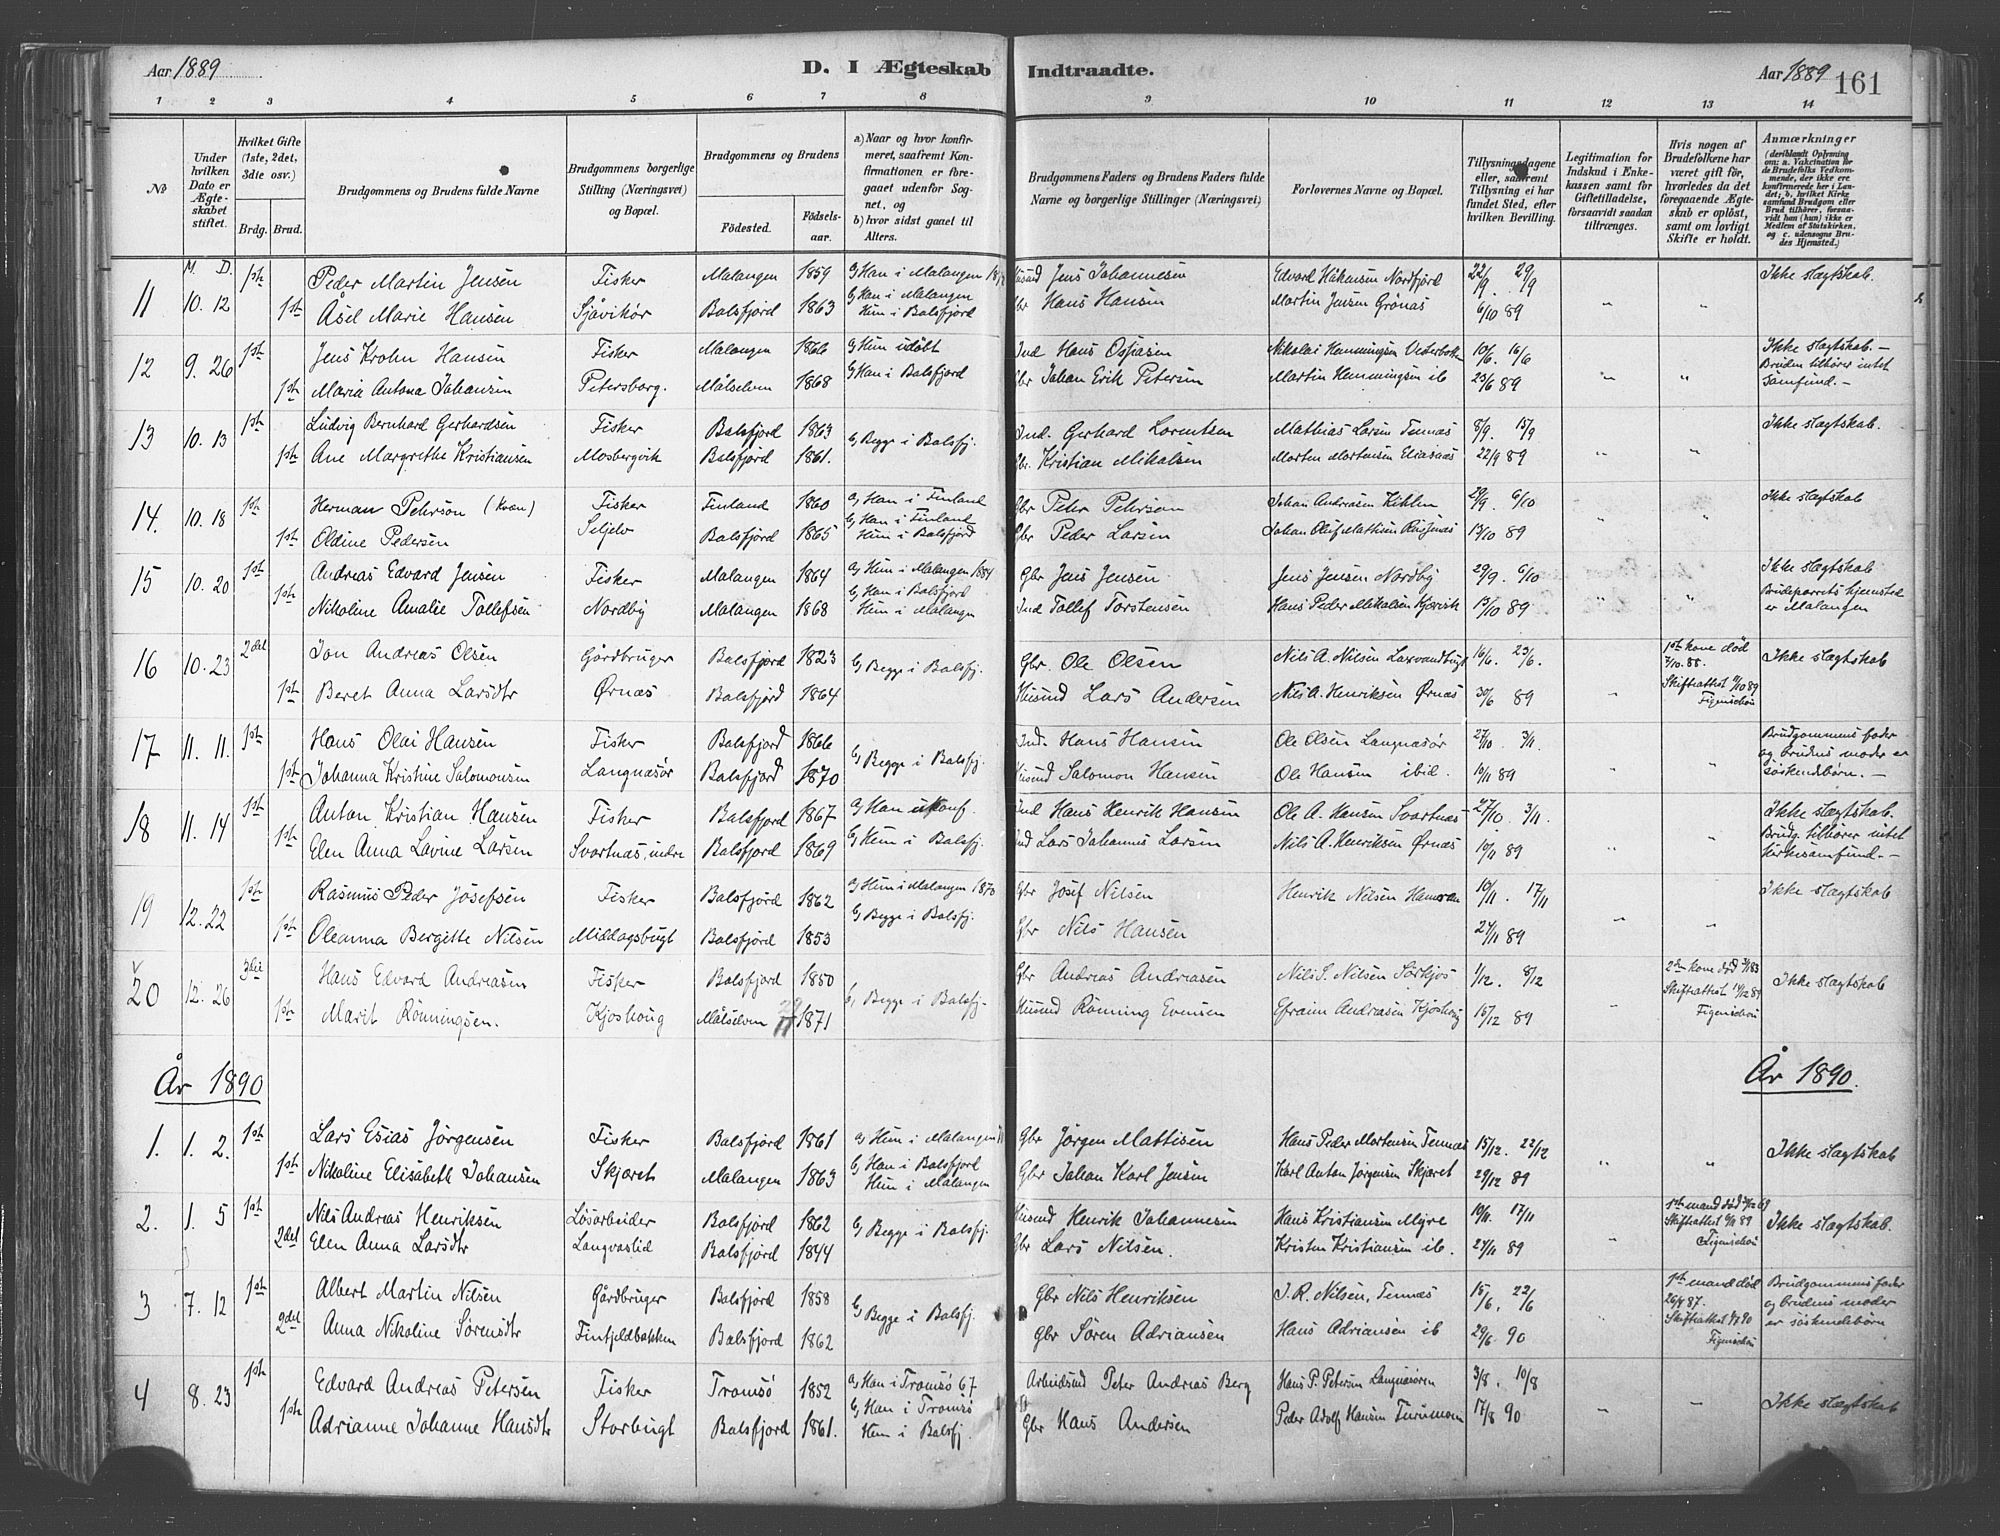 Aar 1889
D. I Ægteskab Indtraadte.
Aar 1889
161
1 2 3 4 5 6 7 8 9 10 11 12 13 14
No
Under hvilken Dato er Ægteskabet stiftet.
Hvilket Gifte (1ste, 2det, 3die osv.)
Brdg. Brud.
Brudgommens og Brudens fulde Navne
Brudgommens borgerlige Stilling (Næringsvei) og Bopæl.
Brudgommens og Brudens
Födested.
Födselsaar.
a) Naar og hvor konfirmeret, saafremt Konfirmationen er foregaaet udenfor Sognet, og
b) hvor sidst gaaet til Alters.
Brudgommens Faders og Brudens Faders fulde Navne og borgerlige Stillinger (Næringsvei)
Forlovernes Navne og Bopæl.
Tillysningsdagene eller, saafremt Tillysning ei har fundet Sted, efter hvilken Bevilling.
Legitimation for Indskud i Enkekassen samt for Giftetilladelse, forsaavidt saadan tiltrænges.
Hvis nogen af Brudefolkene har været gift för, hvorledes da det foregaaende Ægteskab er oplöst, samt om lovligt Skifte er holdt.
Anmærkninger
(deriblandt Oplysning om: a. Vakcination for de Brudefolks Vedkommende, der ikke ere konfirmerede her i Landet; b. hvilket Kirkesamfund Brudgom eller Brud tilhörer, forsaavidt han (hun) ikke er Medlem af Statskirken, og c. udensogns Brudes Hjemsted.)
M. D.
11 10.12 1ste Peder Martin Jensen Fisker Malangen 1859 a, Han i Malangen Husmd Jens Johannesen Edvard Håkensen Nordfjord 22/9. 29/9 Ikke slægtskab.
1ste Åsel Marie Hansen Sjåvikør Balsfjord 1863 b, Han i Malangen Hun i Balsfjord Gbr Hans Hansen Martin Jensen Grønås 6/10 89 " "
12 9.26 1ste Jens Krohn Hansen Fisker Malangen 1866 a, Hun udøbt Ind Hans Ossiasen Nikolai Hemmingsen Vesterbotten 10/6. 16/6 Ikke slægtskab.–
1ste Maria Antona Johansen Petersborg. Målselven 1868 b, Han i Balsfjord Gbr Johan Erik Petersen Martin Hemmingsen ib 23/6 89 " " Bruden tilhører intet samfund.–
13 10.13 1ste Ludvig Bernhard Gerhardsen Fisker Balsfjord 1863 b, Begge i Balsfj. Ind. Gerhard Lorentsen Mathias Larsen Tennæs 8/9. 15/9 Ikke slægtskab.
1ste Ane Margrethe Kristiansen Mosbergvik Balsfjord 1861. Gbr. Kristian Mikalsen Morten Mortensen Eliasaas 22/9 89 " "
14. 10.18 1ste Herman Peterson (Kvæn) Fisker Finland 1860 a, Han i Finland Gbr Peter Peterson Johan Andreasen 29/9. 6/10 Ikke slægtskab
1ste Oldine Pedersen Seljelv Balsfjord 1865 b, Han i Finland Hun i Balsfjord Gbr Peder Larsen Johan Oluf Mathisen 13/10 89 " "
15 10.20 1ste Andreas Edvard Jensen Fisker Malangen 1864 a, Hun i Malangen 1884 Gbr Jens Jensen Jens Jensen Nordby 29/9. 6/10 Ikke slægtskab
1ste Nikoline Amalie Tollefsen Nordby Malangen 1868 b, Han i Balsfjord Hun i Malangen Ind Tollef Torstensen Hans Peder Mikalsen Kjørvik 13/10 89 " " Brudeparrets hjemsted er Malangen
16 10.23 2det Jon Andreas Olsen Gårdbruger Balsfjord 1823 b, Begge i Balsfj. Gbr. Ole Olsen Nils A. Nilsen Laxvandbugt 16/6. 23/6. 1ste kone død 7/10 88. Ikke slægtskab
1ste Beret Anna Larsdtr Ørnæs Balsfjord 1864 Husmd Lars Andersen Nils A. Henriksen Ørnæs 30/6 89 " Skifteattest 11/10 89 Figenschou
17 11.11. 1ste Hans Olai Hansen Fisker Balsfjord 1866 b, Begge i Balsfj. Ind. Hans Hansen Ole Olsen Langnæsør 27/10. 3/11. Brudgommens fader og brudens moder er søskendebørn.–
1ste Johanna Kristine Salomonsen Langnæsør Balsfjord 1870 Husmd Salomon Hansen Ole Hansen ibid. 10/11 89 " "
18 11.14 1ste Anton Kristian Hansen Fisker Balsfjord 1867 a, Han ukonf. Ind Hans Henrik Hansen Ole A. Hansen Svartnæs 27/10. 3/11. Ikke slægtskab.
1ste Elen Anna Lavine Larsen Svartnæs, indre Balsfjord 1869 b, Hun i Balsfj. Ind Lars Johannes Larsen Nils A. Henriksen Ørnæs 10/11 89 " " Brudg. tilhører intet kirkesamfund.–
19 12.22 1ste Rasmus Peder Josefsen Fisker Balsfjord 1862 a, Hun i Malangen 1870 Gbr Josef Nilsen Henrik Nilsen 10/11. 17/11 Ikke slægtskab
1ste Oleanna Bergitte Nilsen Middagsbugt Balsfjord 1853 b, Begge i Balsfj. Gbr Nils Hansen 24/11 89 " "
20 12.26 3die Hans Edvard Andreasen Fisker Balsfjord 1850 b, Begge i Balsfj. Gbr Andreas Andreasen Nils S. Nilsen Sørkjos 1/12. 8/12 2den kone død Ikke slægtskab
1ste Marit Rönningsen. Kjoshoug Målselven 29/11 1871 Husmd Rönning Evensen Efraim Andreasen Kjoshoug 15/12 89 " Skifteattest 14/12 89 Figenschou
År 1890
År 1890.
1. 1.2. 1ste Lars Esias Jørgensen Fisker Balsfjord 1861 a, Hun i Malangen Gbr Jørgen Mattisen Hans Peder Mortensen Tennæs 15/12. 22/12 Ikke slægtskab
1ste Nikoline Elisabeth Johansen Skjæret Malangen 1863 b, Han i Balsfjord Hun i Malangen Gbr Johan Karl Jensen Karl Anton Jørgensen Skjæret 29/12 89 " "
2. 1.5 1ste Nils Andreas Henriksen Løsarbeider Balsfjord 1862 b, Begge i Balsfj. Husmd Henrik Johannesen Hans Kristiansen Myre 10/11. 17/11 1ste mand død Ikke slægtskab.
2det Elen Anna Larsdtr Langvastid Balsfjord 1844 Gbr Lars Nilsen. Kristen Kristiansen ib. 24/11 89 " Skifteattest 6/11 89 Figenschou
3 7.12 1ste Albert Martin Nilsen Gårdbruger Balsfjord 1858 b, Begge i Balsfj. Gbr Nils Henriksen J. R. Nilsen, Tennæs 15/6. 22/6 1ste mand død Brudgommens fader og brudens moder er søskendebørn
2det Anna Nikoline Sørensdtr Finfjeldbakken Balsfjord 1862 Gbr Søren Adriansen Hans Adriansen ib 29/6 90 Skifteattest Figenschou
4 8.23 1ste Edvard Andreas Petersen Fisker Tromsö 1852 a, Han i Tromsö 67 Arbeidsmd Peter Andreas Berg Hans P. Petersen Langnæsören 3/8. 10/8 Ikke slægtskab
1ste Adrianne Johanne Hansdtr Storbugt Balsfjord 1861. b, Han i Tromsö Hun i Balsfj. Gbr Hans Andersen Peder Adolf Hansen 17/8 90 " "